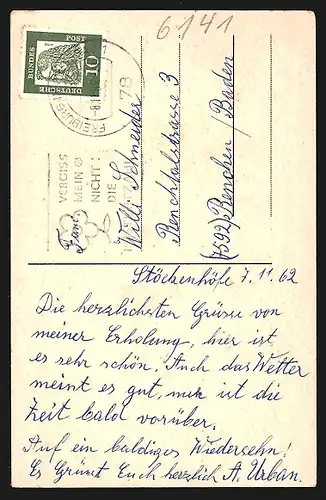 6141
DEUTSCHE
BUNDES
POST
10
FREIBURG
78
VERGISS
MEIN
NICHT:
DIE
Fam.
Willi Schneider
Renchtalstrasse 3
(7592) Renchen / Baden
Stöckenhöfe 7.11.62
Die herzlichsten Grüsse von
meiner Erholung, hier ist
es sehr schön. Auch das Wetter
meint es gut, nur ist die
Zeit bald vorüber.
Auf ein baldiges Wiedersehn!
Es Grüsst Euch herzlich A. Urban.